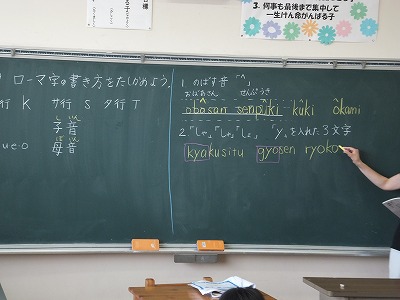 3. 何事も最後まで集中して
一生けん命がんばる子
ローマ字の書き方をたしかめよう。
行 K サ行 S タ行 T
しいん
子音
ぼいん
母音
ue o
1 のばす音「^」
おばあさん せんぷうき
obâsan senpûki kûki ôkami
2.「しゃ」「しゅ」「しょ」 「y」を入れた3文字
kyakusitu gyosen ryoko